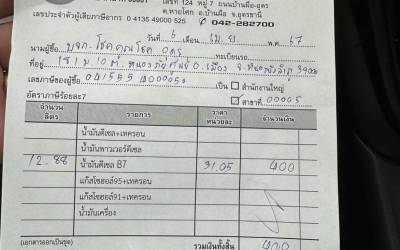 เลขที่ 124 หมู่ 7 ถนนบ้านผือ-อุดร
ต.หายโศก อ.บ้านผือ จ.อุดรธานี
เลขประจำตัวผู้เสียภาษีอากร 0 4135 49000 525
042-282700
วันที่ 6 เม.ย. พ.ศ. 67
นามผู้ซื้อ บจก. โชคคูณโชค อุดร ทะเบียนรถ
ที่อยู่ 181 ม.10 ต. อ.เมือง จ. 39000
เลขภาษีของผู้ซื้อ เป็น สำนักงานใหญ่
อัตราภาษีร้อยละ 7 สาขาที่ 00005
จำนวนลิตร รายการ ราคาหน่วยละ จำนวนเงิน
น้ำมันดีเซล+เทครอน
น้ำมันพาวเวอร์ดีเซล
12.88 น้ำมันดีเซล B7 31.05 400
แก๊สโซฮอล์95+เทครอน
แก๊สโซฮอล์91+เทครอน
น้ำมันเครื่อง
(เอกสารออกเป็นชุด) รวมเงินทั้งสิ้น 400